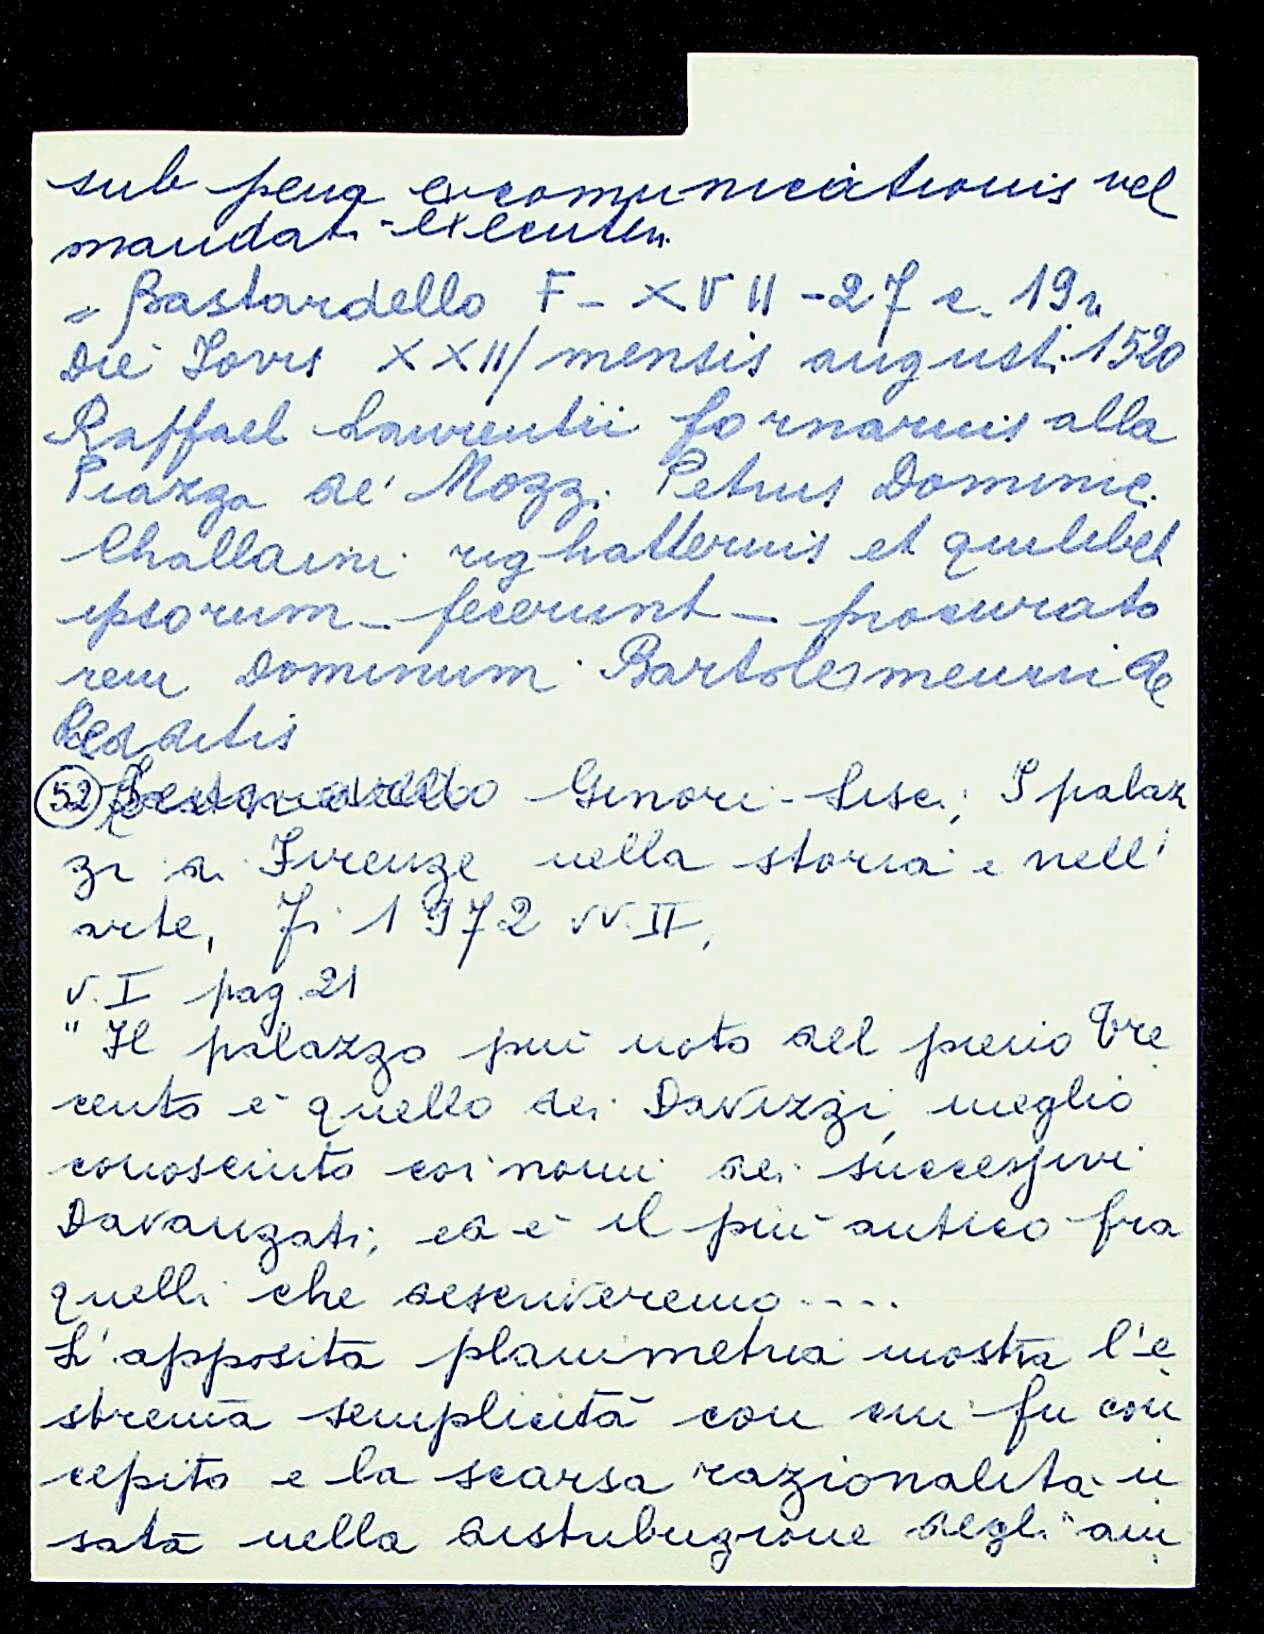 sub pena excomunicationis vel
mandati executu.
= Bastardello F - XVII - 27 c. 19r.
Die Jovis XXIII mensis augusti 1520
Raffael Laurentii fornarius alla
Piazza de' Mozzi. Petrus Dominic.
Challaini righatterius et quilibet
ipsorum - fecerunt - procurato
rem Dominum Bartolomeum de
Redditis
52 Ginori - Lisci; I palaz
zi di Firenze nella storia e nell'
arte, Fi 1972 vv. II,
v. I pag. 21
" Il palazzo più noto del primo Tre
cento è quello dei Davizzi, meglio
conosciuto coi nomi dei successivi
Davanzati; ed è il più antico fra
quelli che descriveremo ....
L'apposita planimetria mostra l'e
strema semplicità con cui fu con
cepito e la scarsa razionalità u
sata nella distribuzione degli am